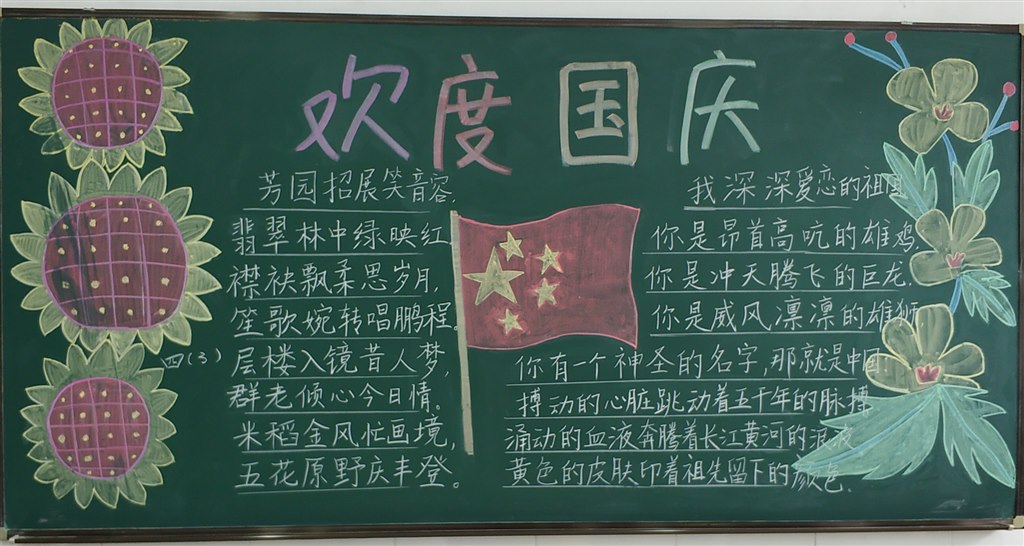 欢度国庆
芳园招展笑音容,
翡翠林中绿映红,
襟袂飘柔思岁月,
笙歌婉转唱鹏程。
四(3)
层楼入镜昔人梦,
群老倾心今日情。
米稻金风忙画境,
五花原野庆丰登。
我深深爱恋的祖国
你是昂首高吭的雄鸡,
你是冲天腾飞的巨龙,
你是威风凛凛的雄狮
你有一个神圣的名字,那就是中国
搏动的心脏跳动着五千年的脉搏
涌动的血液奔腾着长江黄河的浪
黄色的皮肤印着祖先留下的颜色.